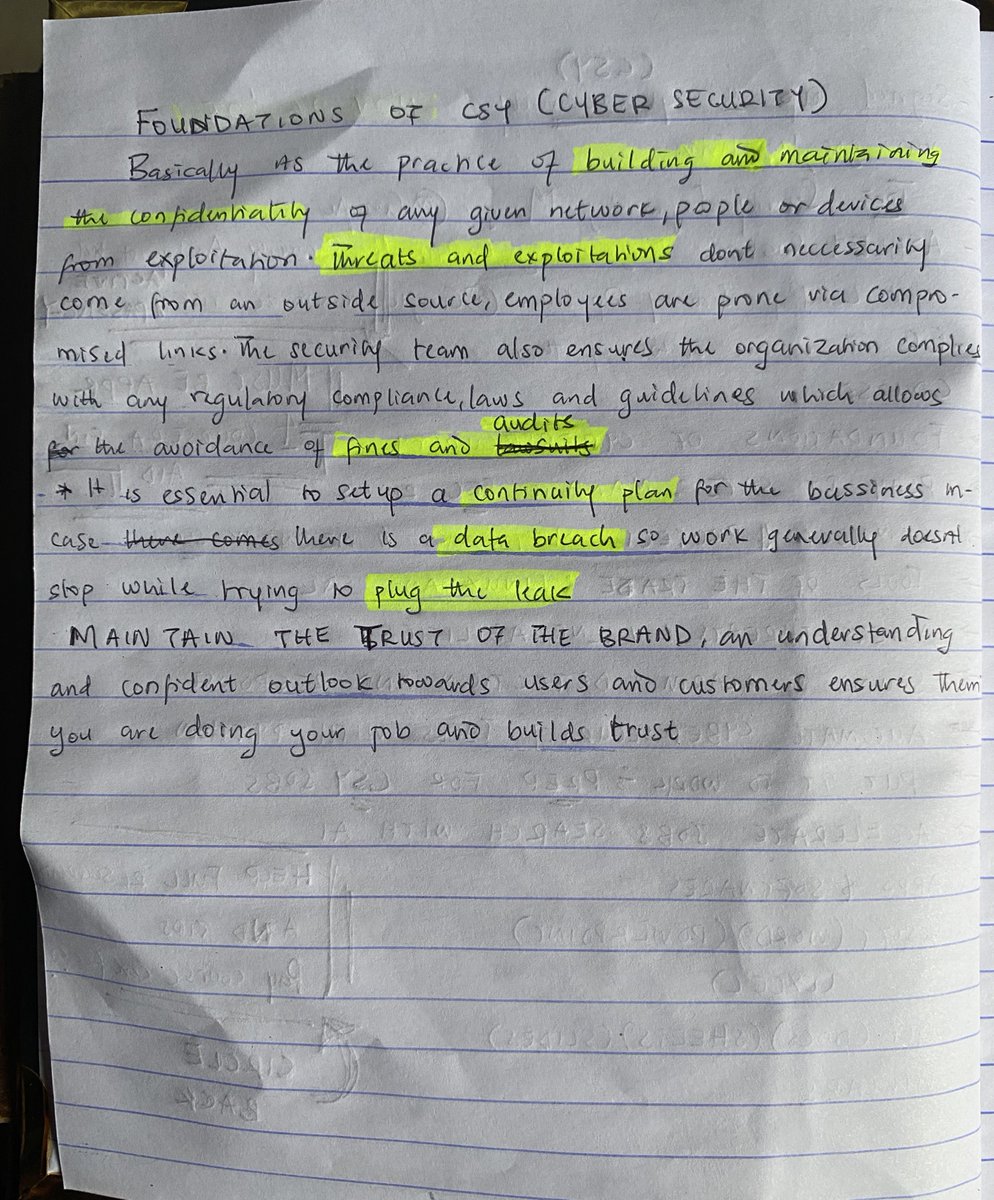 FOUNDATIONS OF CSY (CYBER SECURITY)
Basically as the practice of building and maintaining
the confidentiality of any given network, pople or devices
from exploitation. Threats and exploitations dont neccessarily
come from an outside source, employees are prone via compro-
mised links. The security team also ensures the organization complies
with any regulatory compliance, laws and guidelines which allows
audits
for the avoidance of fines and lawsuits
* It is essential to setup a continuity plan for the bussiness in-
case there comes there is a data breach so work generally doesnt
stop while trying to plug the leak
MAINTAIN THE TRUST OF THE BRAND, an understanding
and confident outlook towards users and customers ensures them
you are doing your job and builds trust